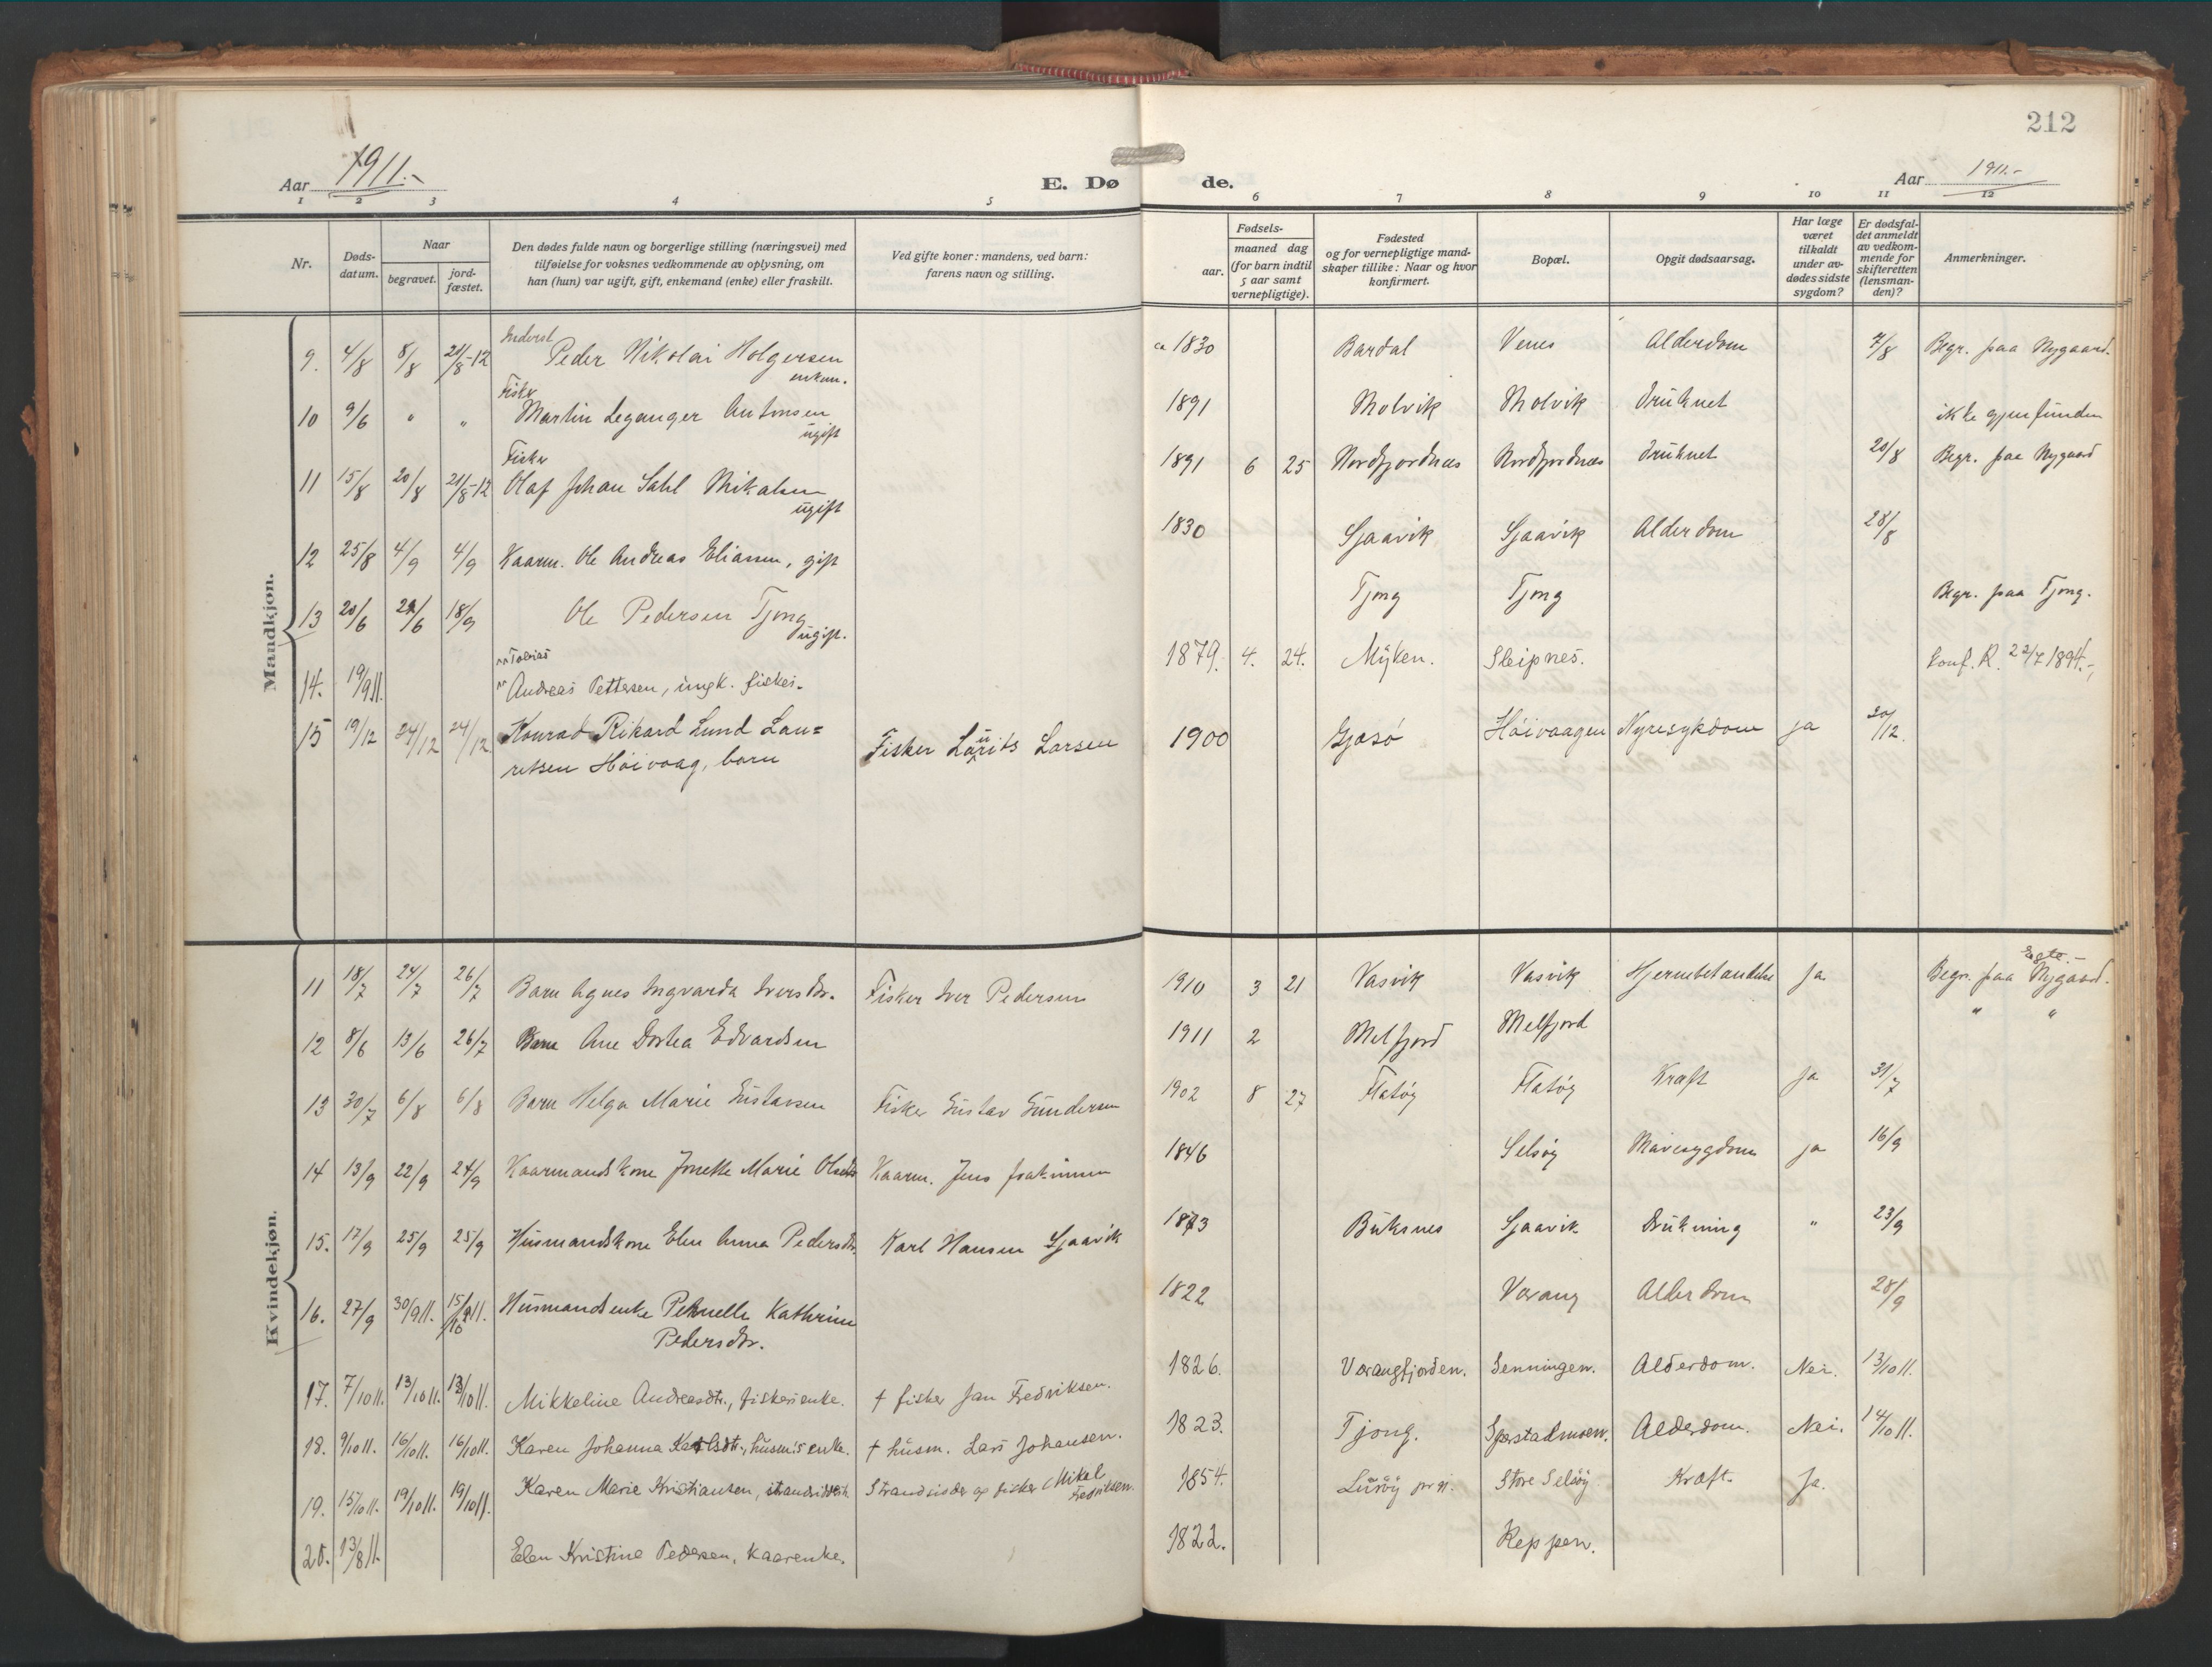 212
Aar 1911.-
E. Dø
de.
Aar 1911.-
1 2 3 4 5 6 7 8 9 10 11 12
Nr.
Døds-
datum.
Naar
begravet.
jord-
fæstet.
Den dødes fulde navn og borgerlige stilling (næringsvei) med
tilføielse for voksnes vedkommende av oplysning, om
han (hun) var ugift, gift, enkemand (enke) eller fraskilt.
Ved gifte koner: mandens, ved barn:
farens navn og stilling.
Fødsels-
aar.
maaned dag
(for barn indtil
5 aar samt
vernepligtige).
Fødested
og for vernepligtige mand-
skaper tillike: Naar og hvor
konfirmert.
Bopæl.
Opgit dødsaarsag.
Har læge
været
tilkaldt
under av-
dødes sidste
sygdom?
Er dødsfal-
det anmeldt
av vedkom-
mende for
skifteretten
(lensman-
den)?
Anmerkninger.
Mandkjøn.
Inderst
9. 4/8 8/8 21/8-12 Peder Nikolai Holgersen ca 1830 Bardal Venes Alderdom 7/8 Begr. paa Nygaard.
enkem.
Fisker
10 9/6 " " Martin Leganger Antonsen 1891 Molvik Molvik Druknet ikke gjenfunden
ugift
Fisker
11 15/8 20/8 21/8-12 Olaf Johan Dahl Mikalsen 1891 6 25 Nordfjordnes Nordfjordnes Druknet 20/8 Begr. paa Nygaard
ugift
12 25/8 4/9 4/9 Kaarm. Ole Andreas Eliassen, gift 1830 Sjaavik Sjaavik Alderdom 28/8
13 20/6 /6 18/9 Ole Pedersen Tjong Tjong Tjong Begr. paa Tjong.
ugift.
Tobias
14. 19/9 11. Andreas Pettersen, ungk. fisker. 1879. 4. 24. Myken. Sleipnes. Konf. R. 22/7 1894.-
15 19/12 24/12 24/12 Konrad Rikard Lund Lau= Fisker Laurits Larsen 1900 Gjæsø Høivaagen Nyresykdom ja 20/12.
ritsen Høivaag, barn
Kvindekjøn.
11 18/7 24/7 26/7 Barn Agnes Ingvarda Iversdtr. Fisker Iver Pedersen 1910 3 21 Vasvik Vasvik Hjernebetændelse Ja Begr. paa Nygaard.
12 8/6 13/6 26/7 Barn Ane Dortea Edvardsen 1911 2 Melfjord Melfjord " "
13 30/7 6/8 6/8 Barn Helga Marie Gustavsen Fisker Gustav Gundersen 1902 8 27 Flatøy Flatøy Kræft Ja 31/7
14 13/9 22/9 24/9 Kaarmandskone Jonette Marie Olsdtr Kaarm. Jens Joakimsen 1846 Selsøy Mavesygdom ja 16/9
15. 17/9 25/9 25/9 Husmandskone Elen Anna Pedersdtr. Karl Hansen Sjaavik 1873 Buksnes Sjaavik Drukning " 23/9
16. 27/9 30/9 11. 15/10 11. Husmandsenke Petnelle Kathrine 1822 Værang Alderdom 28/9
Pedersdtr.
17. 7/10 11. 13/10 11. 13/10 11. Mikkeline Andreasdtr., fiskerienke. † fisker Jan Fredriksen. 1826. Værangfjorden. Senningen. Alderdom. Nei. 13/10 11.
18. 9/10 11. 16/10 11. 16/10 11. Karen Johanna Karlsdtr., husm's enke. † husm. Lars Johansen. 1823. Tjong. Alderdom. Nei. 14/10 11.
19. 15/10 11. 19/10 11. 19/10 11. Karen Marie Kristiansen, Strandsidder og fisker Mikal 1854. Lurøy prgj. Store Selsøy Kræft. Ja.
Fredriksen.
20. 13/8 11. Elen Kristine Pedersen, kaarenke. 1822. Reppen.